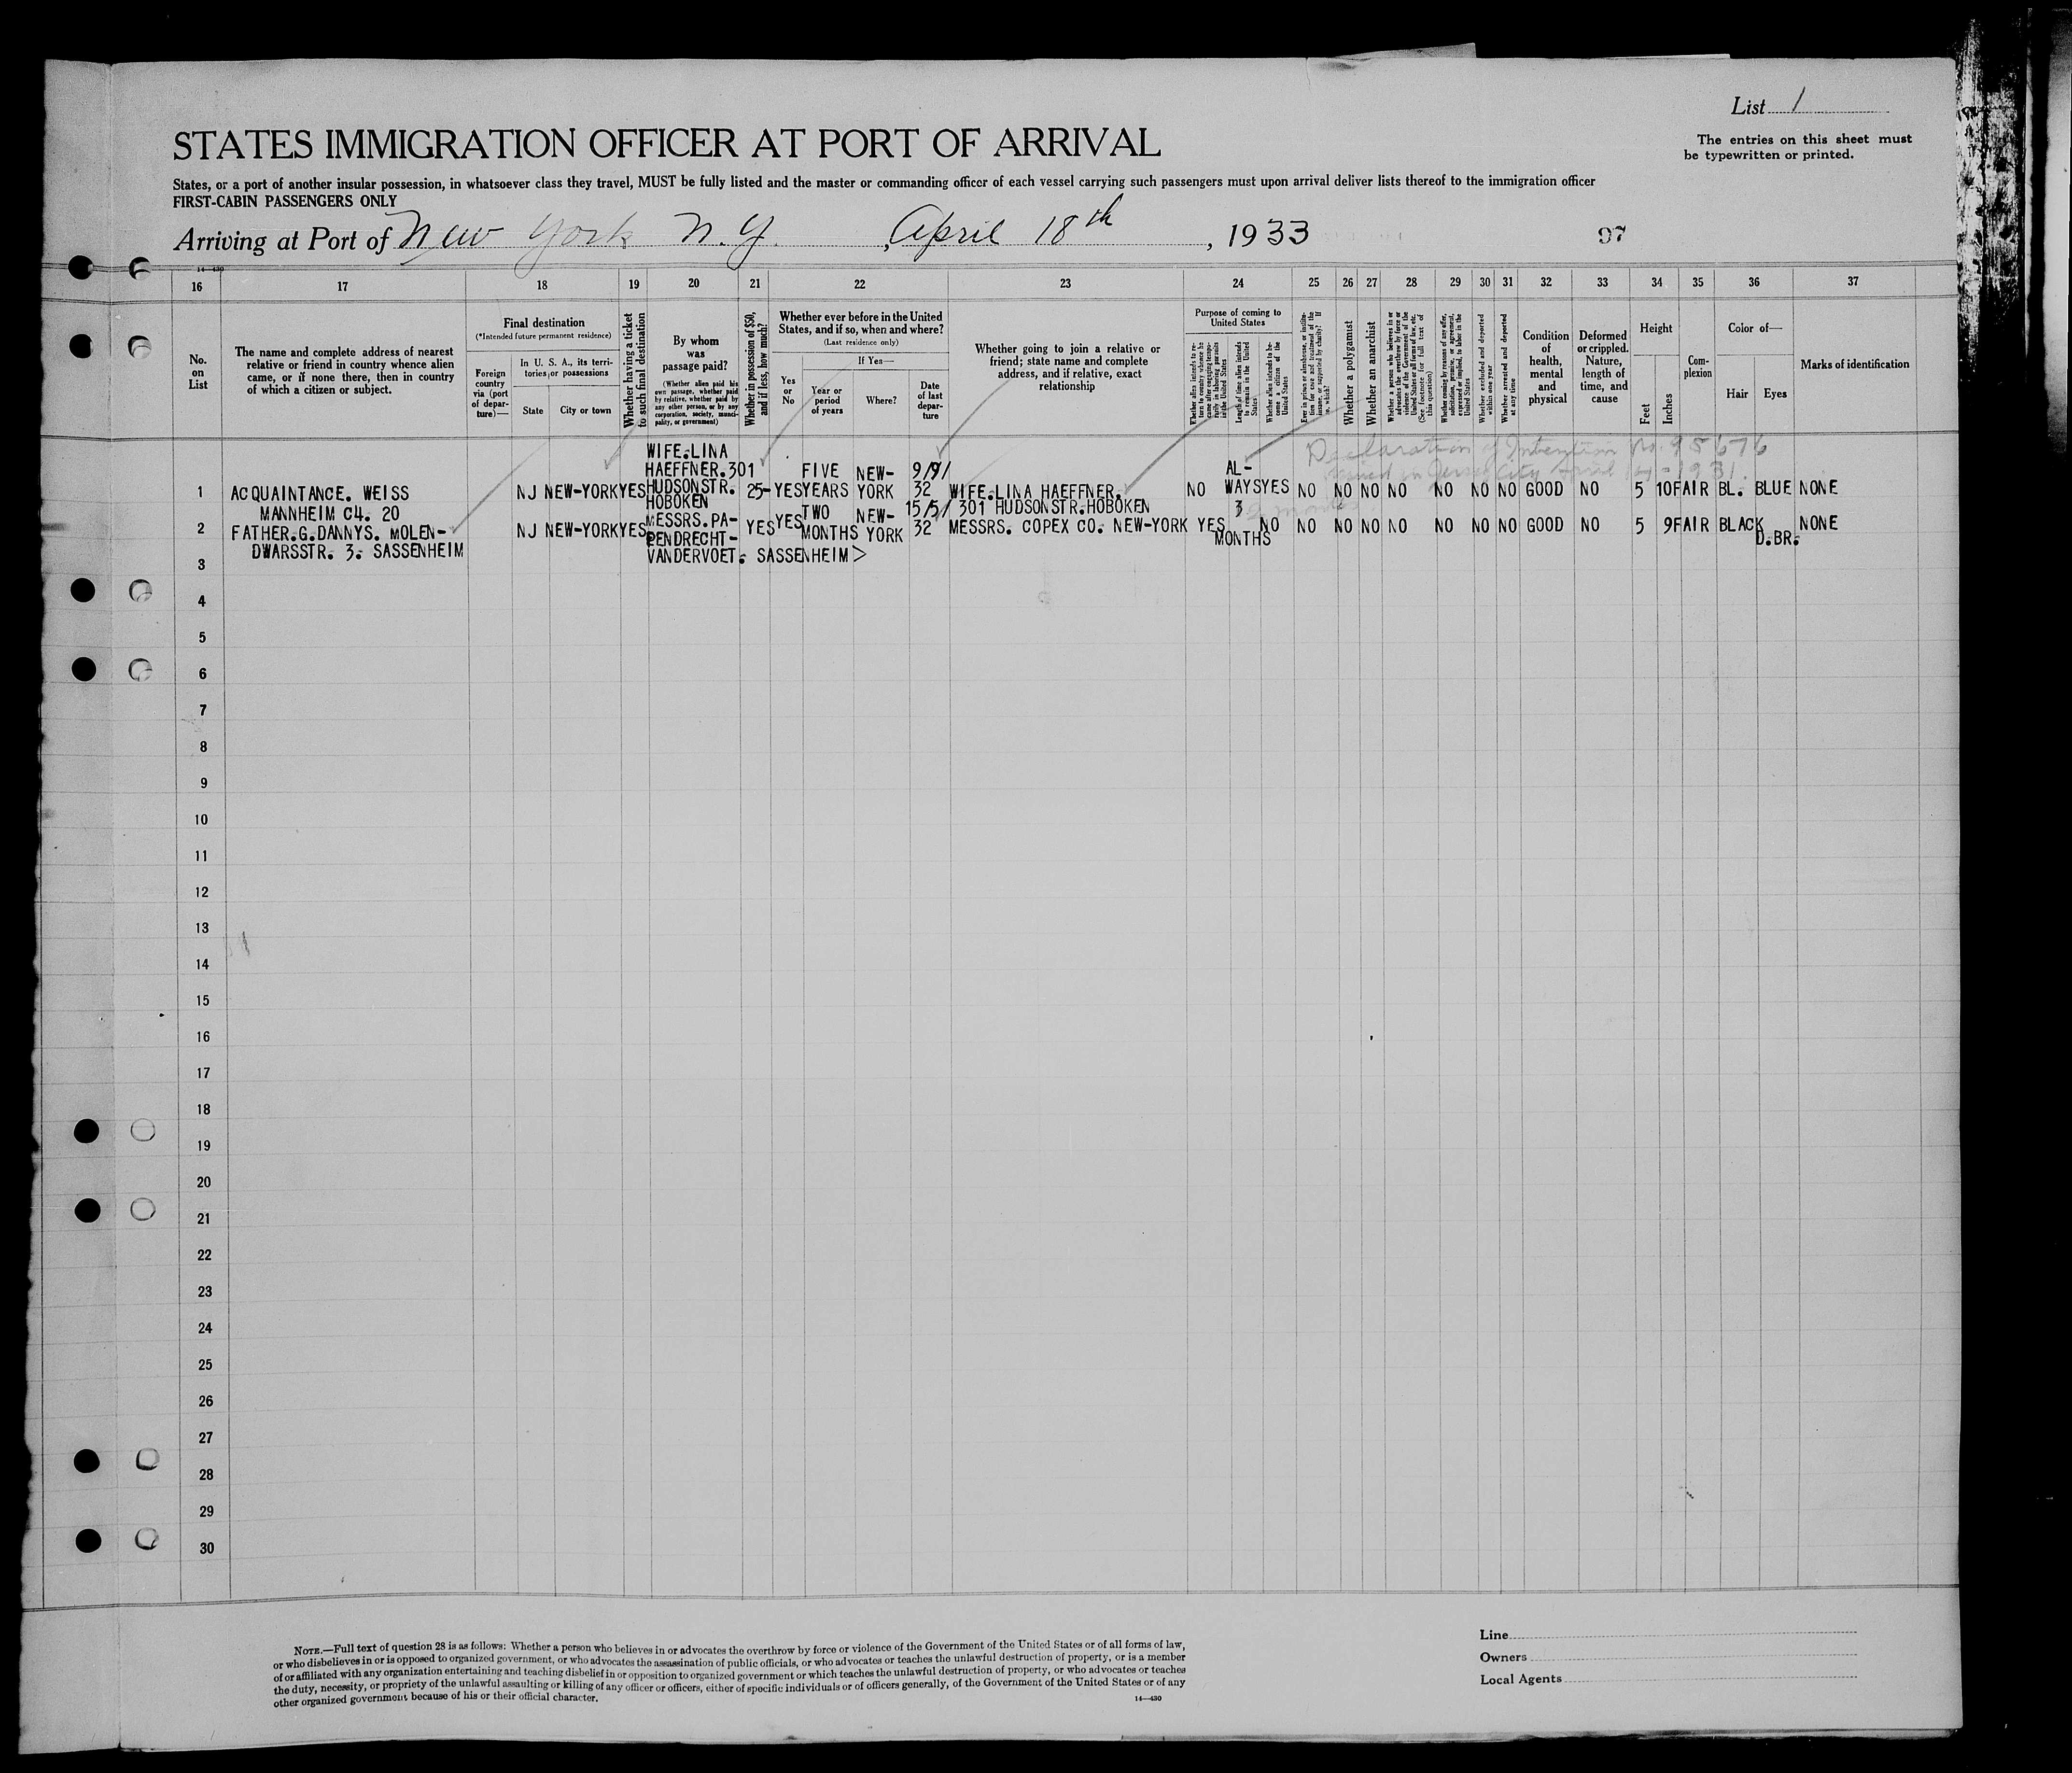 List 1
STATES IMMIGRATION OFFICER AT PORT OF ARRIVAL
The entries on this sheet must
be typewritten or printed.
States, or a port of another insular possession, in whatsoever class they travel, MUST be fully listed and the master or commanding officer of each vessel carrying such passengers must upon arrival deliver lists thereof to the immigration officer
FIRST-CABIN PASSENGERS ONLY
Arriving at Port of New York N.Y. , April 18th , 1933
97
14—430
16 17 18 19 20 21 22 23 24 25 26 27 28 29 30 31 32 33 34 35 36 37
No.
on
List
The name and complete address of nearest
relative or friend in country whence alien
came, or if none there, then in country
of which a citizen or subject.
Final destination
(*Intended future permanent residence)
Foreign
country
via (port
of depar-
ture)—
In U. S. A., its terri-
tories or possessions
State
City or town
Whether having a ticket
to such final destination
By whom
was
passage paid?
(Whether alien paid his
own passage, whether paid
by relative, whether paid by
any other person, or by any
corporation, society, munici-
pality, or government)
Whether in possession of $50,
and if less, how much?
Whether ever before in the United
States, and if so, when and where?
(Last residence only)
Yes
or
No
If Yes—
Year or
period
of years
Where?
Date
of last
depar-
ture
Whether going to join a relative or
friend; state name and complete
address, and if relative, exact
relationship
Purpose of coming to
United States
Whether alien intends to re-
turn to country whence he
came after engaging tempo-
rarily in laboring pursuits
in the United States
Length of time alien intends
to remain in the United
States
Whether alien intends to be-
come a citizen of the
United States
Ever in prison or almshouse, or institu-
tion for care and treatment of the
insane, or supported by charity? If
so, which?
Whether a polygamist
Whether an anarchist
Whether a person who believes in or
advocates the overthrow by force or
violence of the Government of the
United States or all forms of law, etc.
(See footnote for full text of
this question)
Whether coming by reason of any offer,
solicitation, promise, or agreement,
expressed or implied, to labor in the
United States
Whether excluded and deported
within one year
Whether arrested and deported
at any time
Condition
of
health,
mental
and
physical
Deformed
or crippled.
Nature,
length of
time, and
cause
Height
Feet
Inches
Com-
plexion
Color of—
Hair
Eyes
Marks of identification
Declaration of Intention No. 95676
issued in Jersey City April 14-1931
1 ACQUAINTANCE. WEISS
MANNHEIM C4. 20
NJ NEW-YORK YES
WIFE.LINA
HAEFFNER.301
HUDSONSTR.
HOBOKEN
25- YES
FIVE
YEARS
NEW-
YORK
9/9/
32
WIFE.LINA HAEFFNER.
301 HUDSONSTR.HOBOKEN
NO
AL-
WAYS
YES NO NO NO NO NO NO NO GOOD NO 5 10 FAIR BL. BLUE NONE
2 FATHER.G.DANNYS. MOLEN-
DWARSSTR. 3. SASSENHEIM
NJ NEW-YORK YES
MESSRS. PA-
PENDRECHT-
VANDERVOET. SASSENHEIM >
YES YES
TWO
MONTHS
NEW-
YORK
15/5/
32
MESSRS. COPEX CO. NEW-YORK
YES
3
MONTHS
NO NO NO NO NO NO NO NO GOOD NO 5 9 FAIR BLACK
D.BR.
NONE
3
4
5
6
7
8
9
10
11
12
13
14
15
16
17
18
19
20
21
22
23
24
25
26
27
28
29
30
NOTE.—Full text of question 28 is as follows: Whether a person who believes in or advocates the overthrow by force or violence of the Government of the United States or of all forms of law,
or who disbelieves in or is opposed to organized government, or who advocates the assassination of public officials, or who advocates or teaches the unlawful destruction of property, or is a member
of or affiliated with any organization entertaining and teaching disbelief in or opposition to organized government or which teaches the unlawful destruction of property, or who advocates or teaches
the duty, necessity, or propriety of the unlawful assaulting or killing of any officer or officers, either of specific individuals or of officers generally, of the Government of the United States or of any
other organized government because of his or their official character.
14—430
Line
Owners
Local Agents